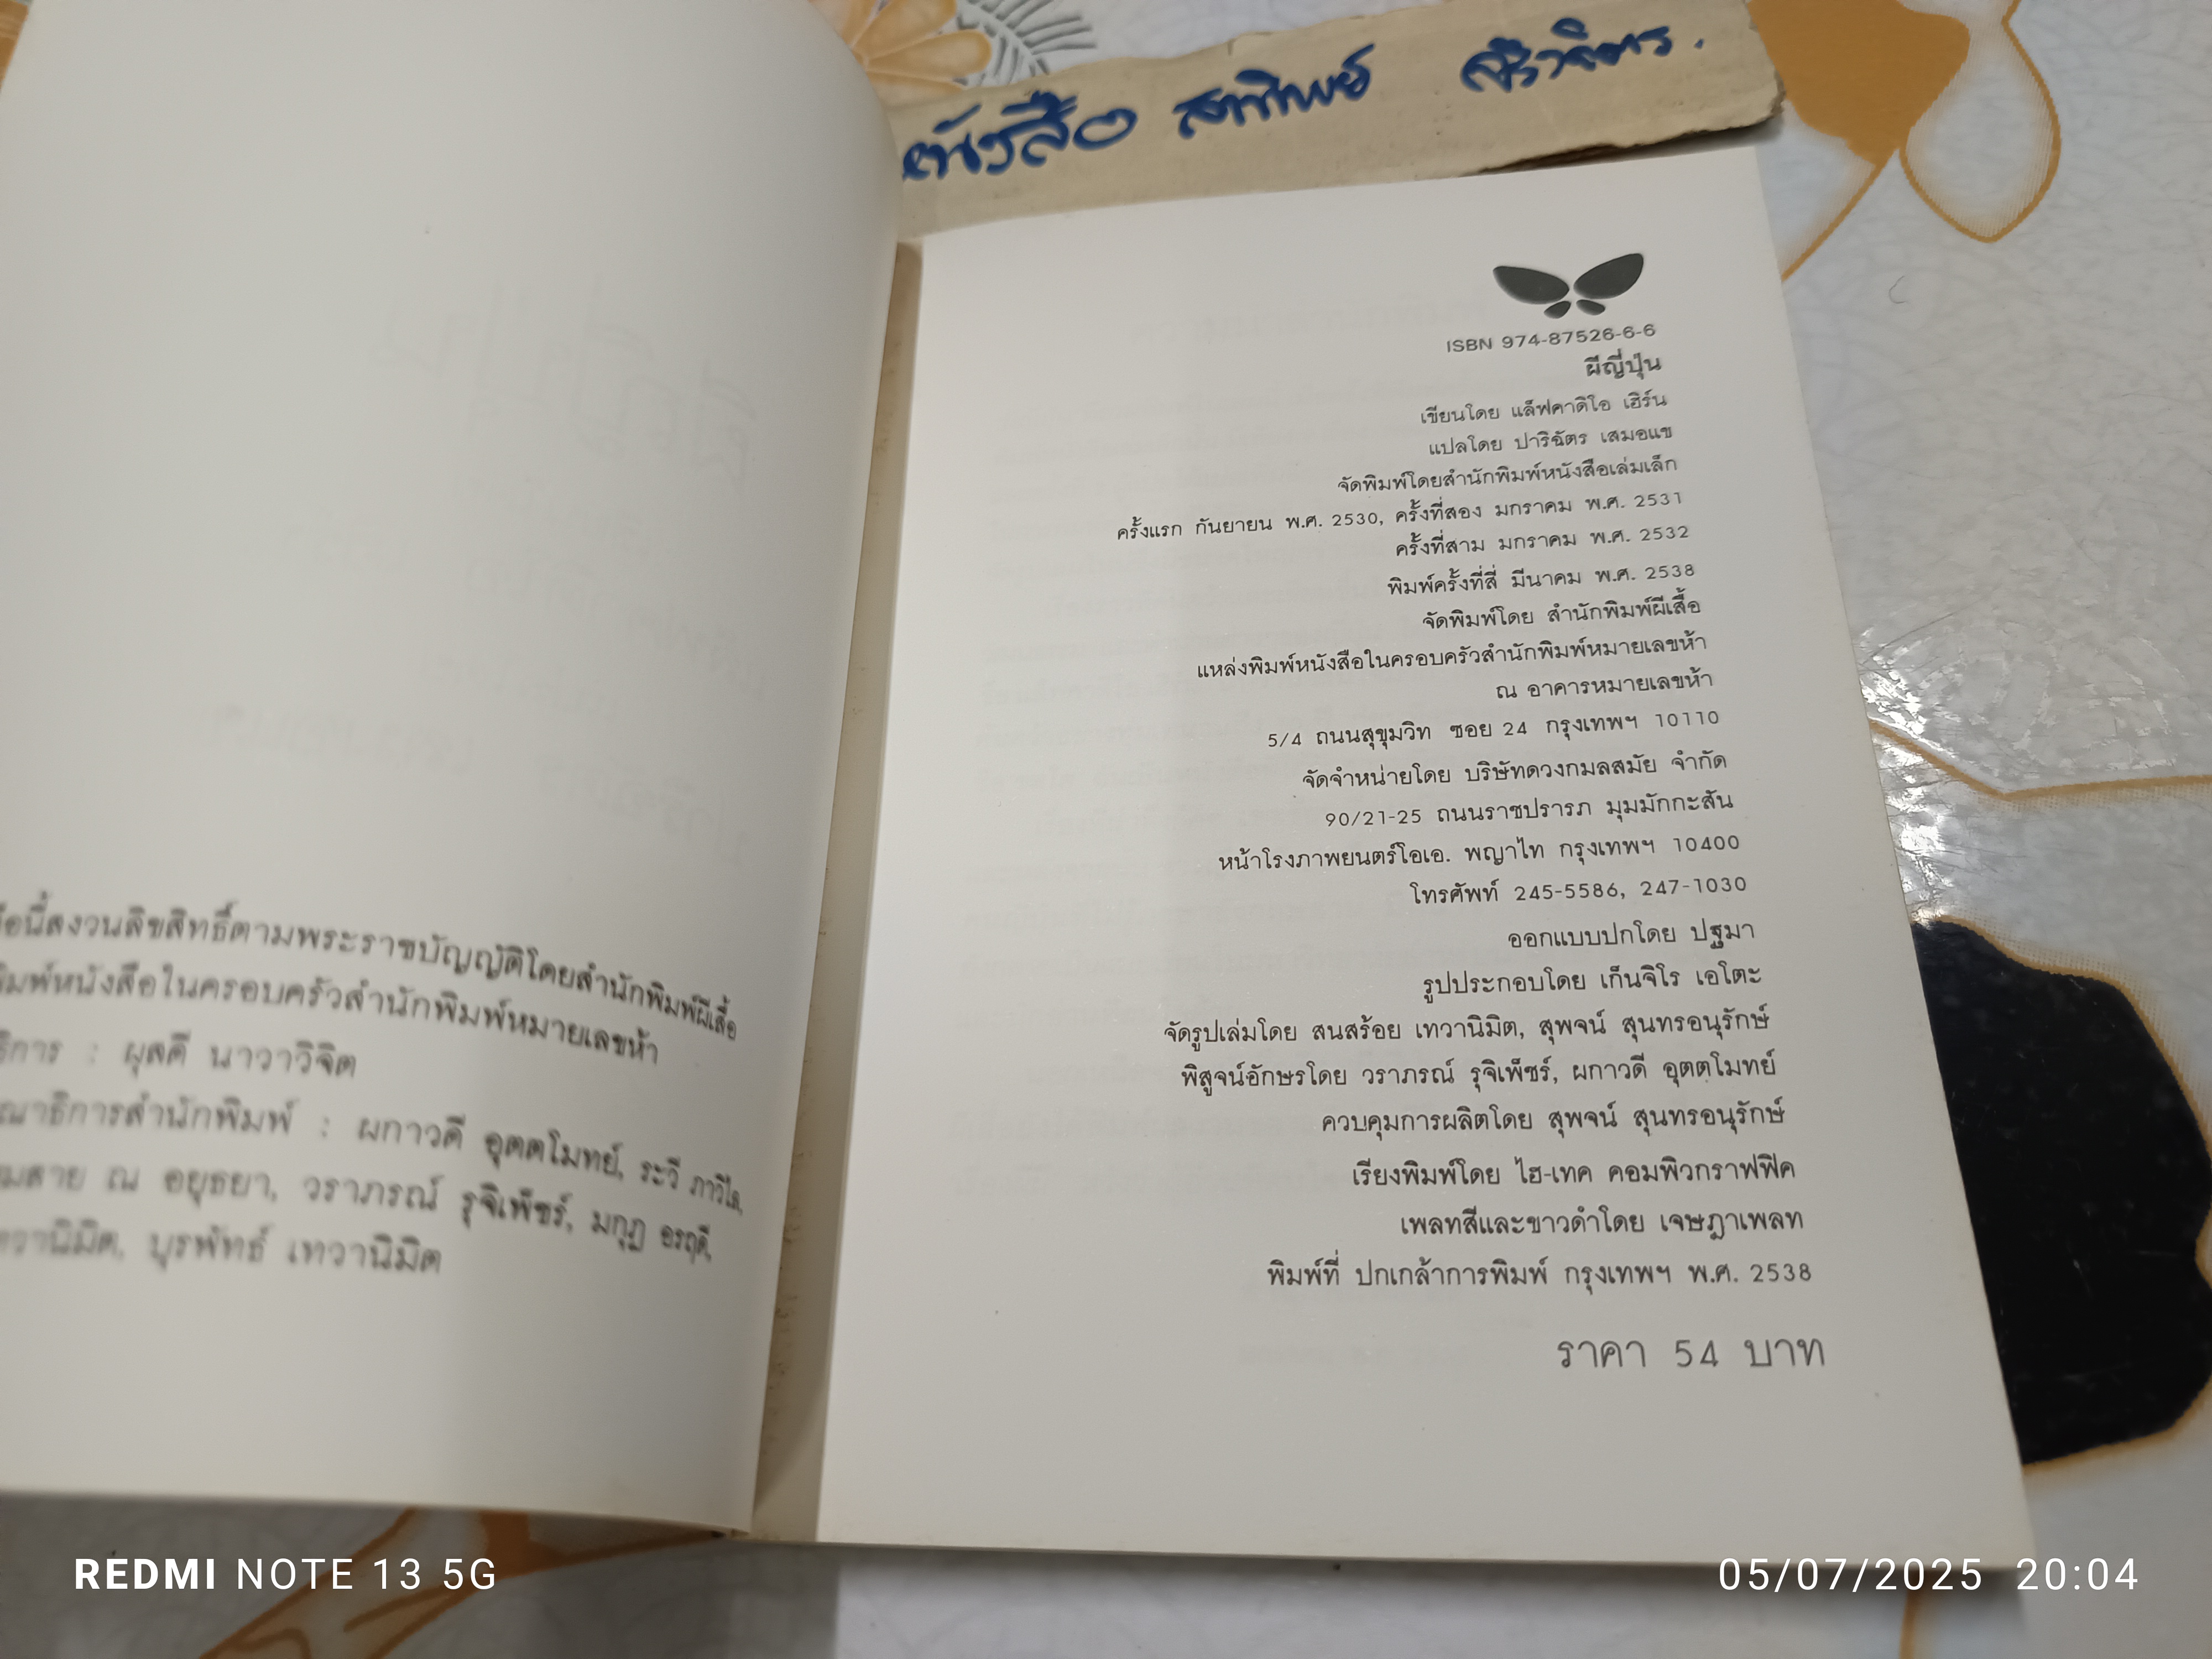 หนังสือ สุทาทิพย์ ศิริวิจิตร.
ISBN 974-87526-6-6
ผีญี่ปุ่น
เขียนโดย แล็ฟคาดิโอ เฮิร์น
แปลโดย ปาริฉัตร เสมอแข
จัดพิมพ์โดยสำนักพิมพ์หนังสือเล่มเล็ก
ครั้งแรก กันยายน พ.ศ. 2530, ครั้งที่สอง มกราคม พ.ศ. 2531
ครั้งที่สาม มกราคม พ.ศ. 2532
พิมพ์ครั้งที่สี่ มีนาคม พ.ศ. 2538
จัดพิมพ์โดย สำนักพิมพ์ผีเสื้อ
แหล่งพิมพ์หนังสือในครอบครัวสำนักพิมพ์หมายเลขห้า
ณ อาคารหมายเลขห้า
5/4 ถนนสุขุมวิท ซอย 24 กรุงเทพฯ 10110
จัดจำหน่ายโดย บริษัทดวงกมลสมัย จำกัด
90/21-25 ถนนราชปรารภ มุมมักกะสัน
หน้าโรงภาพยนตร์โอเอ. พญาไท กรุงเทพฯ 10400
โทรศัพท์ 245-5586, 247-1030
ออกแบบปกโดย ปฐมา
รูปประกอบโดย เก็นจิโร เอโตะ
จัดรูปเล่มโดย สนสร้อย เทวานิมิต, สุพจน์ สุนทรอนุรักษ์
พิสูจน์อักษรโดย วราภรณ์ รุจิเพ็ชร์, ผกาวดี อุตตโมทย์
ควบคุมการผลิตโดย สุพจน์ สุนทรอนุรักษ์
เรียงพิมพ์โดย ไฮ-เทค คอมพิวกราฟฟิค
เพลทสีและขาวดำโดย เจษฎาเพลท
พิมพ์ที่ ปกเกล้าการพิมพ์ กรุงเทพฯ พ.ศ. 2538
ราคา 54 บาท
นี้สงวนลิขสิทธิ์ตามพระราชบัญญัติโดยสำนักพิมพ์ผีเสื้อ
พิมพ์หนังสือในครอบครัวสำนักพิมพ์หมายเลขห้า
: ผุสดี นาวาวิจิต
ณาธิการสำนักพิมพ์ : ผกาวดี อุตตโมทย์, ระวี ภาวิไล,
ณ อยุธยา, วราภรณ์ รุจิเพ็ชร์, มกุฏ อรฤดี,
เทวานิมิต, บุรพัทธ์ เทวานิมิต
REDMI NOTE 13 5G
05/07/2025 20:04